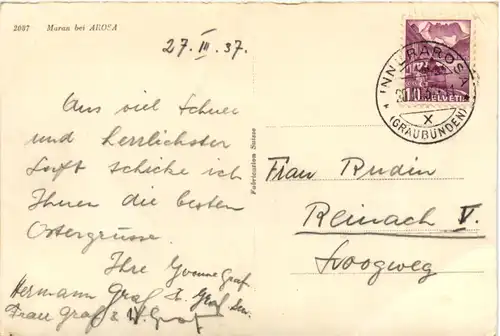 2007 Maran bei AROSA
27. III. 37.
Aus viel Schnee
und herrlichster
Luft schicke ich
Ihnen die besten
Ostergrüsse.
Ihre Yvonne Graf.
Hermann Graf
Frau Graf & W. Graf
Fabrication Suisse
INNERAROSA
(GRAUBÜNDEN)
X
10 HELVETIA
Frau Rudin
Reinach